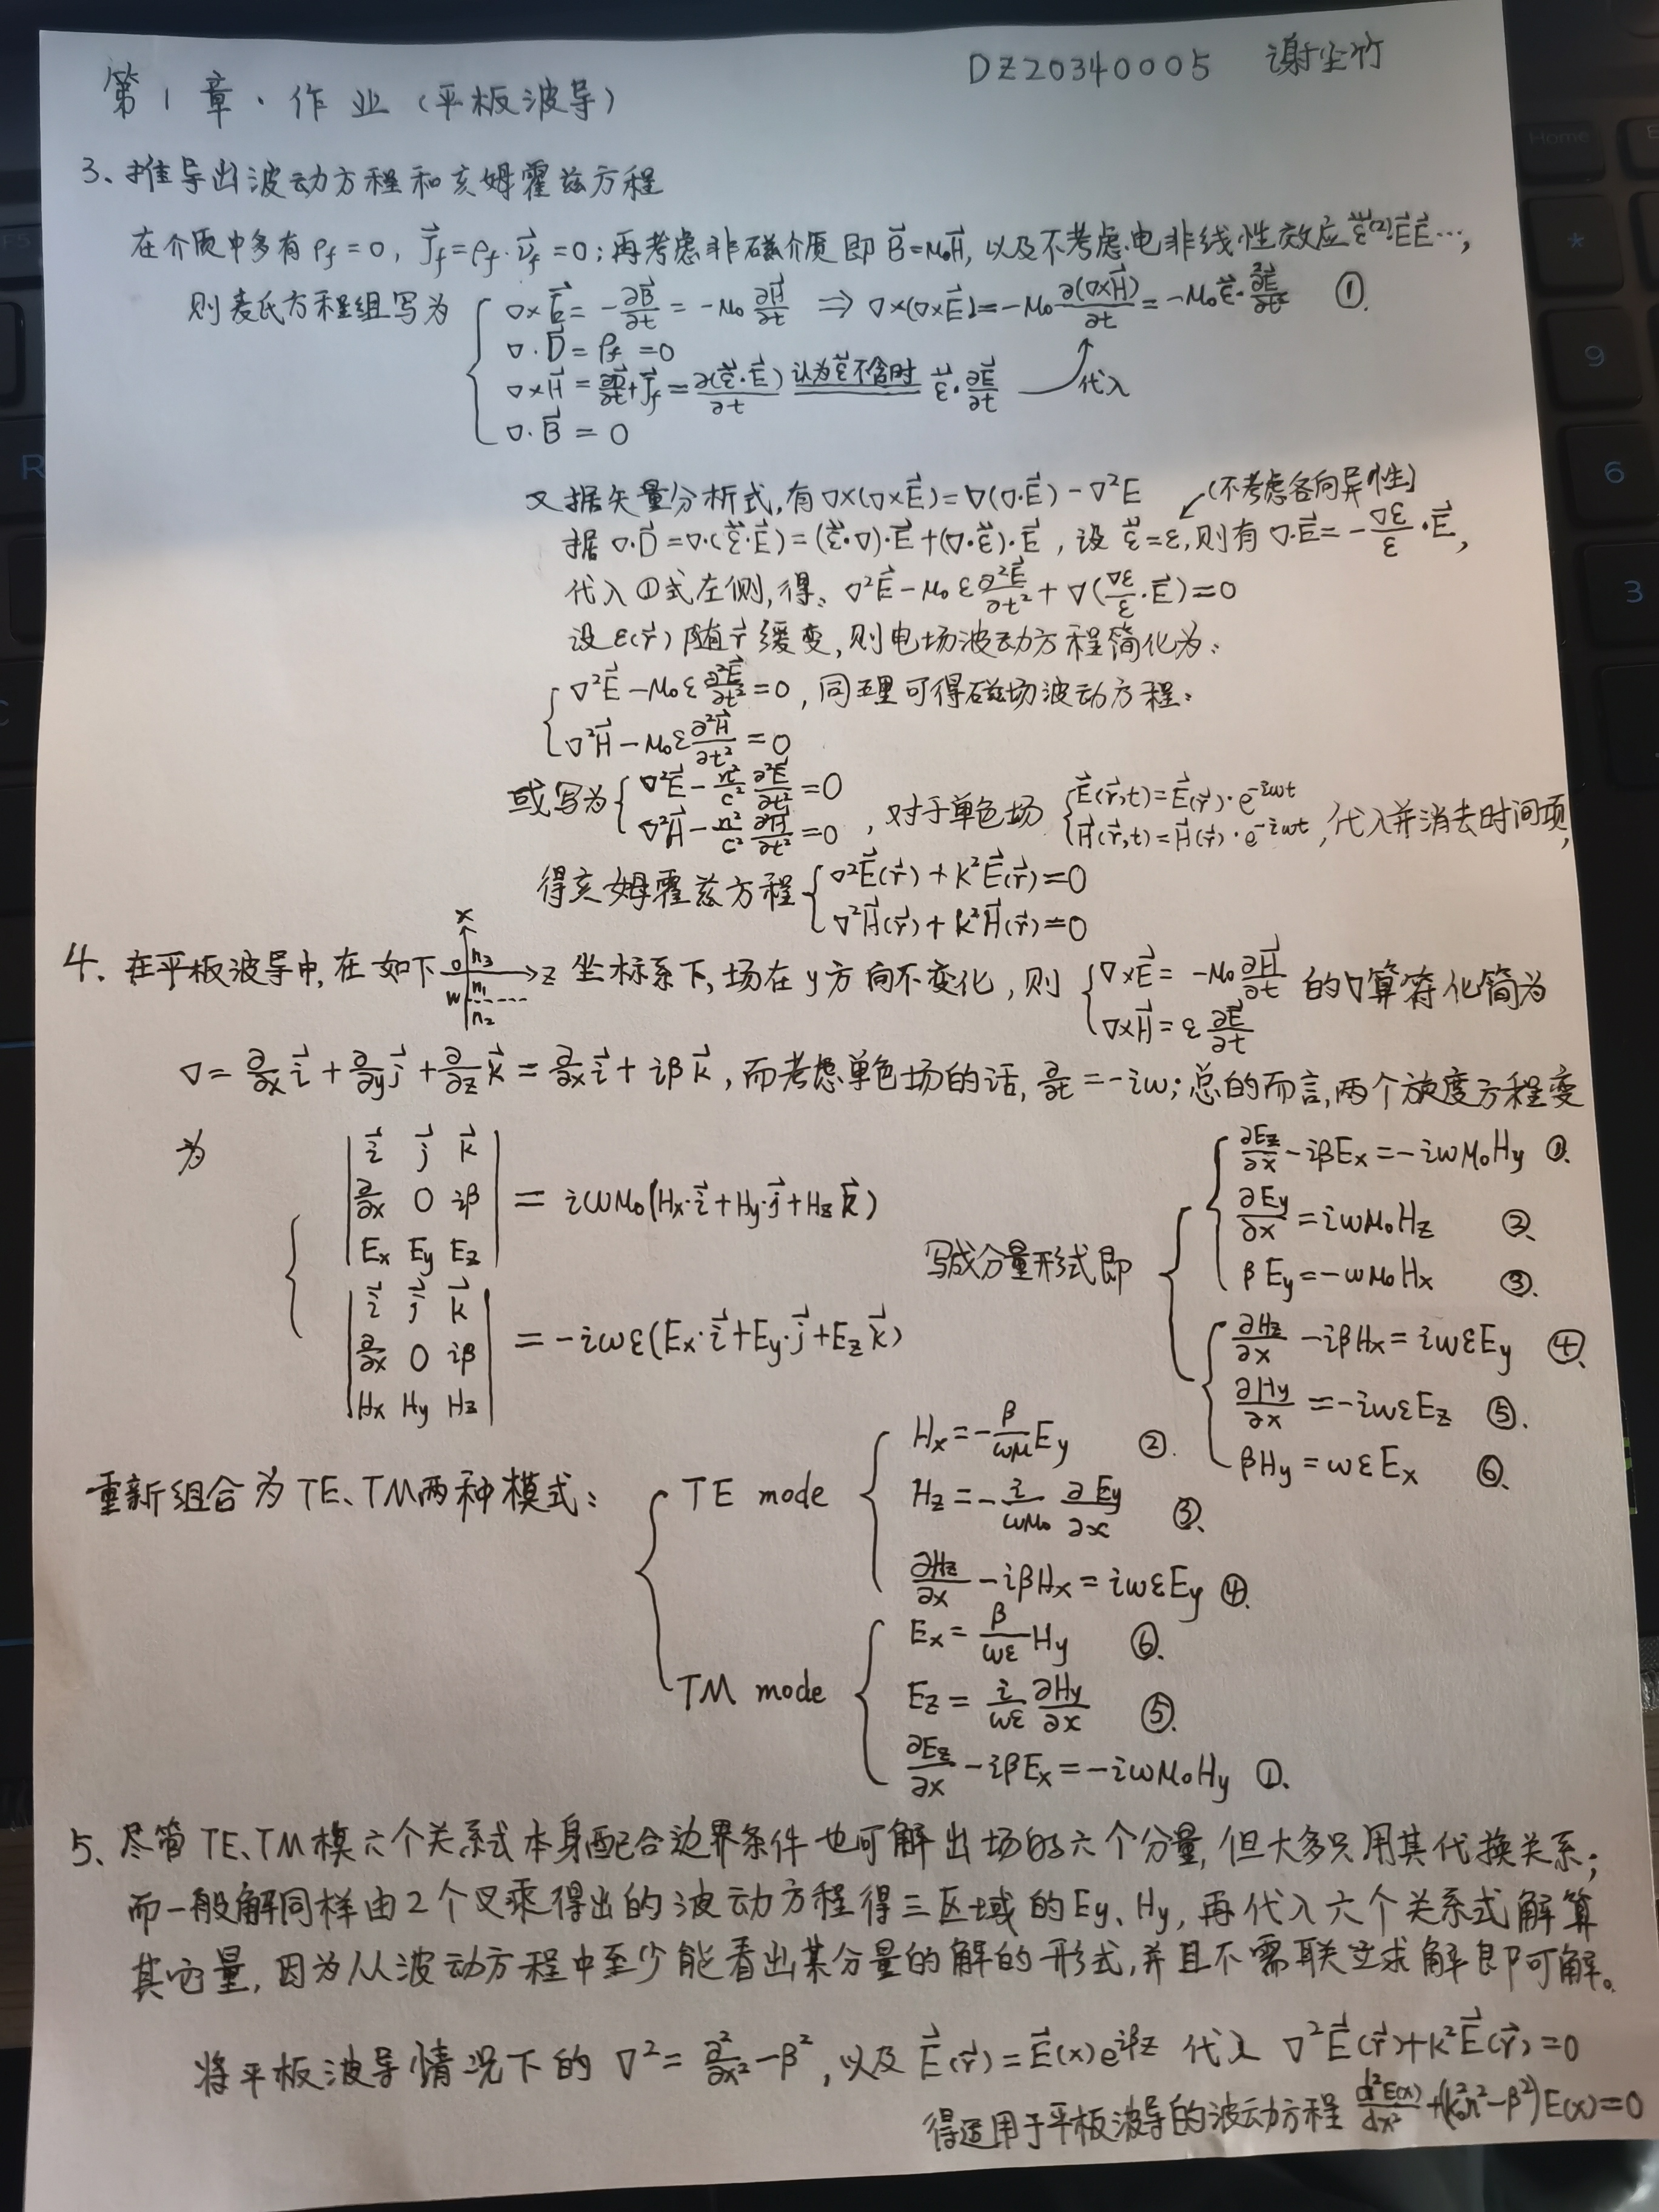 DZ20340005 谢尘竹
第1章·作业(平板波导)
3、推导出波动方程和亥姆霍兹方程
在介质中多有ρf=0, J⃗f=ρf·v⃗f=0;再考虑非磁介质即B⃗=μ₀H⃗,以及不考虑电非线性效应ε⃡⁽²⁾E⃗E⃗…,
则麦氏方程组写为 { ∇×E⃗=-∂B⃗/∂t=-μ₀∂H⃗/∂t ⇒ ∇×(∇×E⃗)=-μ₀∂(∇×H⃗)/∂t=-μ₀ε⃡·∂²E⃗/∂t² ①.
∇·D⃗=ρf=0
∇×H⃗=∂D⃗/∂t+J⃗f=∂(ε⃡·E⃗)/∂t 认为ε⃡不含时 ε⃡·∂E⃗/∂t 代入
∇·B⃗=0
又据矢量分析式,有∇×(∇×E⃗)=∇(∇·E⃗)-∇²E (不考虑各向异性)
据∇·D⃗=∇·(ε⃡·E⃗)=(ε⃡·∇)·E⃗+(∇·ε⃡)·E⃗,设ε⃡=ε,则有∇·E⃗=-∇ε/ε·E⃗,
代入①式左侧,得:∇²E⃗-μ₀ε∂²E⃗/∂t²+∇(∇ε/ε·E⃗)=0
设ε(r⃗)随r⃗缓变,则电场波动方程简化为:
{ ∇²E⃗-μ₀ε∂²E⃗/∂t²=0,同理可得磁场波动方程:
∇²H⃗-μ₀ε∂²H⃗/∂t²=0
或写为 { ∇²E⃗-n²/c² ∂²E⃗/∂t²=0
∇²H⃗-n²/c² ∂²H⃗/∂t²=0 ,对于单色场 { E⃗(r⃗,t)=E⃗(r⃗)·e^-iωt
H⃗(r⃗,t)=H⃗(r⃗)·e^-iωt ,代入并消去时间项,
得亥姆霍兹方程 { ∇²E⃗(r⃗)+k²E⃗(r⃗)=0
∇²H⃗(r⃗)+k²H⃗(r⃗)=0
4、在平板波导中,在如下 x 0 n₃ z w n₁ n₂ 坐标系下,场在y方向不变化,则 { ∇×E⃗=-μ₀∂H⃗/∂t
∇×H⃗=ε∂E⃗/∂t 的∇算符化简为
∇=∂/∂x i⃗+∂/∂y j⃗+∂/∂z k⃗=∂/∂x i⃗+iβk⃗,而考虑单色场的话,∂/∂t=-iω;总的而言,两个旋度方程变
为
{ | i⃗ j⃗ k⃗ |
| ∂/∂x 0 iβ | =iωμ₀(Hx·i⃗+Hy·j⃗+Hz k⃗)
| Ex Ey Ez |
| i⃗ j⃗ k⃗ |
| ∂/∂x 0 iβ | =-iωε(Ex·i⃗+Ey·j⃗+Ez k⃗)
| Hx Hy Hz |
写成分量形式即
{ ∂Ez/∂x-iβEx=-iωμ₀Hy ①.
∂Ey/∂x=iωμ₀Hz ②.
βEy=-ωμ₀Hx ③.
{ ∂Hz/∂x-iβHx=iωεEy ④.
∂Hy/∂x=-iωεEz ⑤.
βHy=ωεEx ⑥.
重新组合为TE、TM两种模式:
TE mode { Hx=-β/ωμ Ey ②.
Hz=-i/ωμ₀ ∂Ey/∂x ③.
∂Hz/∂x-iβHx=iωεEy ④.
TM mode { Ex=β/ωε Hy ⑥.
Ez=i/ωε ∂Hy/∂x ⑤.
∂Ez/∂x-iβEx=-iωμ₀Hy ①.
5、尽管TE、TM模六个关系式本身配合边界条件也可解出场的六个分量,但大多只用其代换关系;
而一般解同样由2个叉乘得出的波动方程得三区域的Ey、Hy,再代入六个关系式解算
其它量,因为从波动方程中至少能看出某分量的解的形式,并且不需联立求解即可解。
将平板波导情况下的∇²=∂²/∂x²-β²,以及E⃗(r⃗)=E⃗(x)e^iβz代入∇²E⃗(r⃗)+k²E⃗(r⃗)=0
得适用于平板波导的波动方程 d²E(x)/dx²+(k₀²n²-β²)E(x)=0